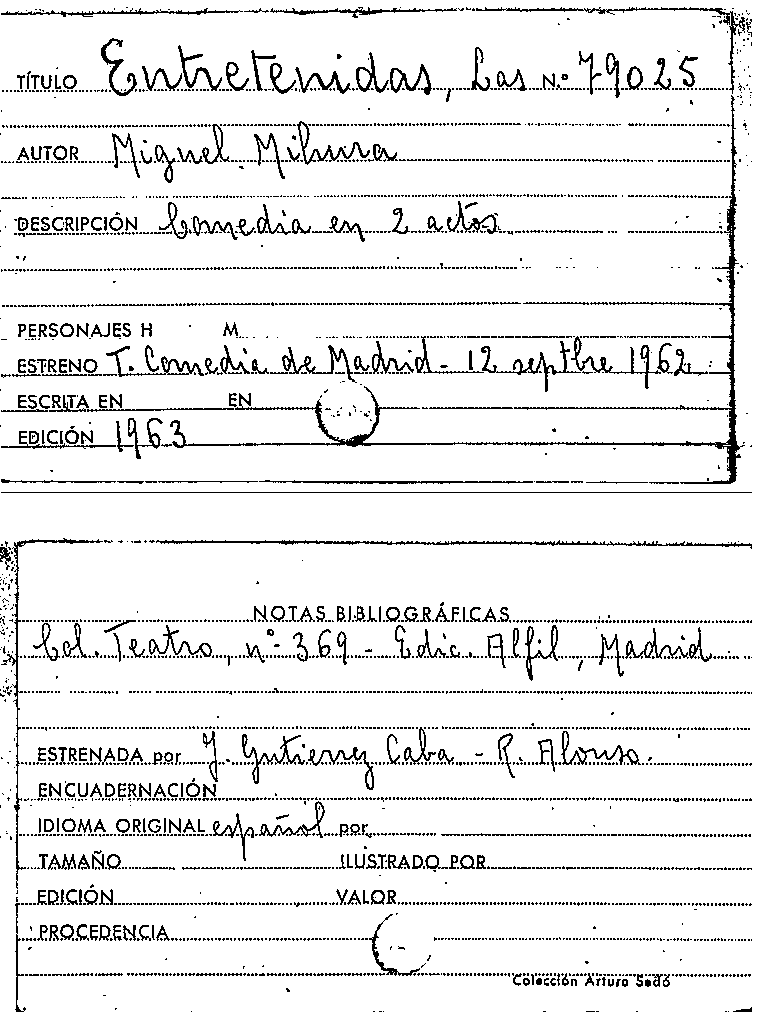 TÍTULO Entretenidas, Las N.º 79025
AUTOR Miguel Mihura
DESCRIPCIÓN Comedia en 2 actos
PERSONAJES H M
ESTRENO T. Comedia de Madrid - 12 septbre 1962
ESCRITA EN EN
EDICIÓN 1963
NOTAS BIBLIOGRÁFICAS
Col. Teatro, nº 369 - Edic. Alfil, Madrid
ESTRENADA por J. Gutierrez Caba - R. Alonso.
ENCUADERNACIÓN
IDIOMA ORIGINAL español por
TAMAÑO ILUSTRADO POR
EDICIÓN VALOR
PROCEDENCIA
Colección Arturo Sedó